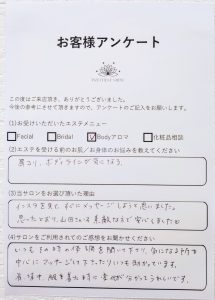 お客様アンケート
この度はご来店頂き、ありがとうございました。
今後の参考にさせて頂きますので、アンケートのご記入をお願いします。
(1)お受けいただいたエステメニュー
Facial Bridal Bodyアロマ 化粧品相談
(2)エステを受ける前のお肌／お身体のお悩みを教えてください
肩コリ、ボディラインが気になる。
(3)当サロンをお選び頂いた理由
インスタを見て、私にマッサージしようと思いました。
思ったとおり、山田さんは素敵な方で安心しました
(4)サロンをご利用されてのご感想をお聞かせください
いつもその時の体調を聞いて下さり、気になる所を
中心にマッサージして下さりいつも助かっています。